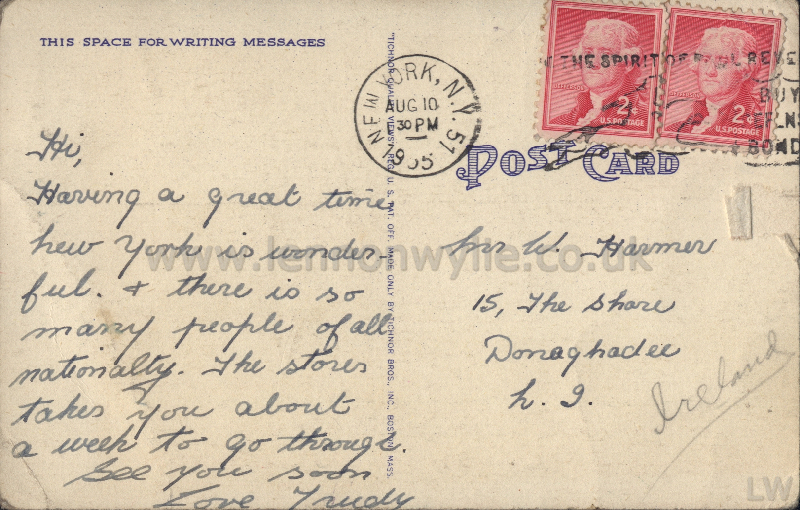 THIS SPACE FOR WRITING MESSAGES
Hi,
Having a great time
New York is wonder-
ful. & there is so
many people of all
nationalty. The stores
takes you about
a week to go through.
See you soon
Love Trudy
"TICHNOR QUALITY VIEWS," REG. U. S. PAT. OFF. MADE ONLY BY TICHNOR BROS., INC., BOSTON, MASS.
NEW YORK, N.Y. 51
AUG 10
30 PM
1955
THE SPIRIT OF REVE
BUY
BOND
JEFFERSON
2¢
U.S. POSTAGE
JEFFERSON
2¢
U.S. POSTAGE
POST CARD
Mrs W. Harmer
15, The Shore
Donaghadee
N. I.
Ireland
www.lennonwylie.co.uk
LW